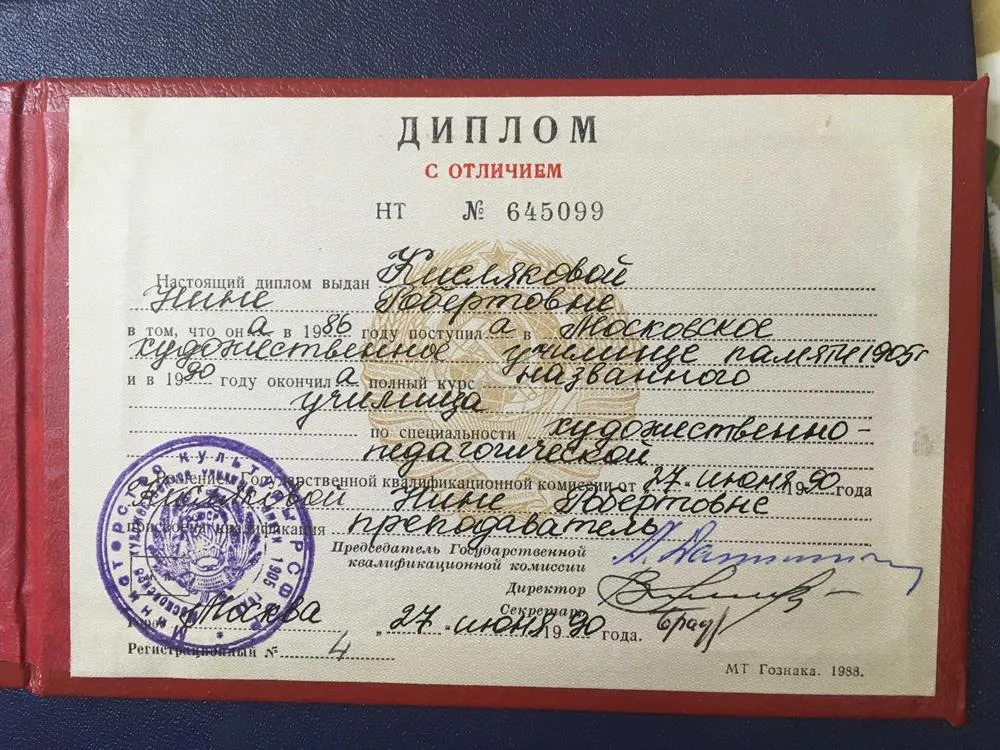 ДИПЛОМ
С ОТЛИЧИЕМ
НТ № 645099
Настоящий диплом выдан Кисляковой
Нине Робертовне
в том, что она в 1986 году поступила в Московское
художественное училище памяти 1905 г
и в 1990 году окончила полный курс названного
училища
по специальности художественно-
педагогической
Решением Государственной квалификационной комиссии от 27 июня 1990 года
Кисляковой Нине Робертовне
присвоена квалификация преподаватель
Председатель Государственной
квалификационной комиссии
Директор
Секретарь
Город Москва „27“ июня 1990 года.
Регистрационный № 4
МТ Гознака. 1988.
Министерство культуры РСФСР